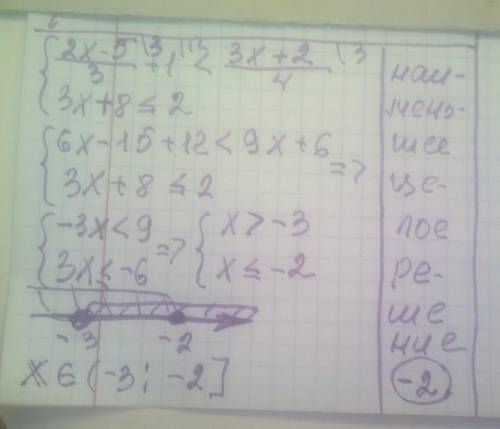 { (2x-5)/3 \3 + 1 \12 < (3x+2)/4 \3
3x+8 ≤ 2
{ 6x-15+12 < 9x+6
3x+8 ≤ 2 =>
{ -3x < 9
3x ≤ -6 => { x > -3
x ≤ -2
-3 -2
x ∈ (-3; -2]
наи-
мень-
шее
це-
лое
ре-
ше
ние
-2